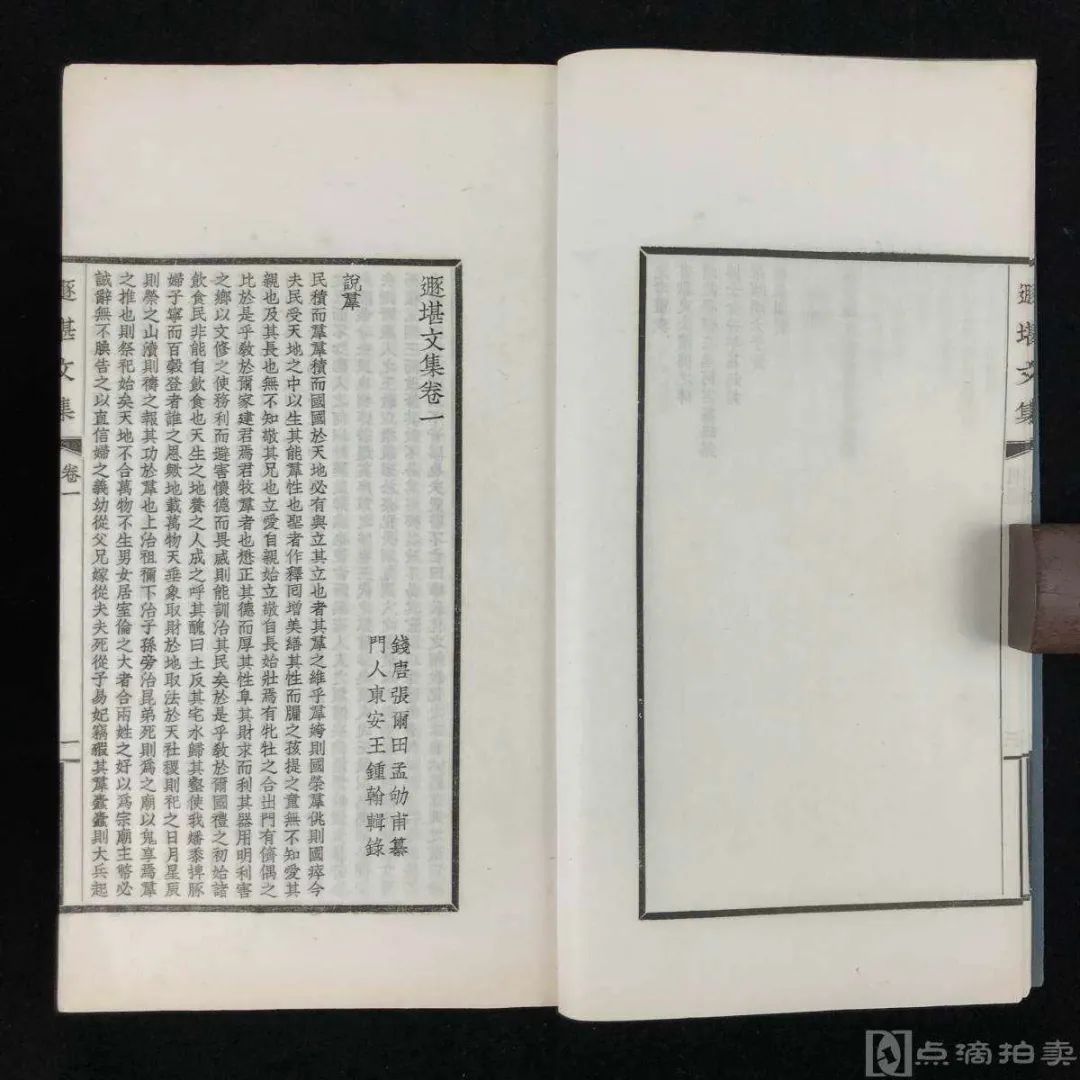 遯堪文集
遯堪文集卷一
錢唐張爾田孟劬甫纂
門人東安王鍾翰輯錄
說羣
民積而羣羣積而國國於天地必有與立其立也者其羣之維乎羣 則國榮羣 則國瘁今
夫民受天地之中以生其能羣性也聖者作釋回增美繕其性而牖之孩提之童無不知愛其
親也及其長也無不知敬其兄也立愛自親始立敬自長始壯焉有牝牡之合出門有儕偶之
比於是乎敎於爾家建君焉君牧羣者也懋正其德而厚其性阜其財求而利其器用明利害
之鄉以文修之使務利而避害懷德而畏威則能訓治其民矣於是乎敎於爾國禮之初始諸
飮食民非能自飮食也天生之地養之人成之呼其醜曰土反其宅水歸其壑使我燔黍捭豚
婦子寧而百穀登者誰之恩歟地載萬物天垂象取財於地取法於天社稷則祀之日月星辰
則禜之山瀆則禱之報其功於羣也上治祖禰下治子孫旁治昆弟死則爲之廟以鬼享焉羣
之推也則祭祀始矣天地不合萬物不生男女居室倫之大者合兩姓之好以爲宗廟主幣必
誠辭無不腆告之以直信婦之義幼從父兄嫁從夫夫死從子易妃竊 其羣蠢蠢則大兵起
遯堪文集
卷一
一
点滴拍卖